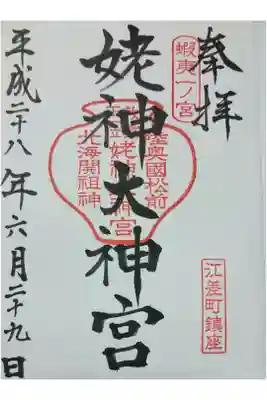 奉拝
蝦夷一ノ宮
江差町鎮座
姥神大神宮
陸奥國松前
姥神
宮
北海開祖神
平成二十八年六月二十九日